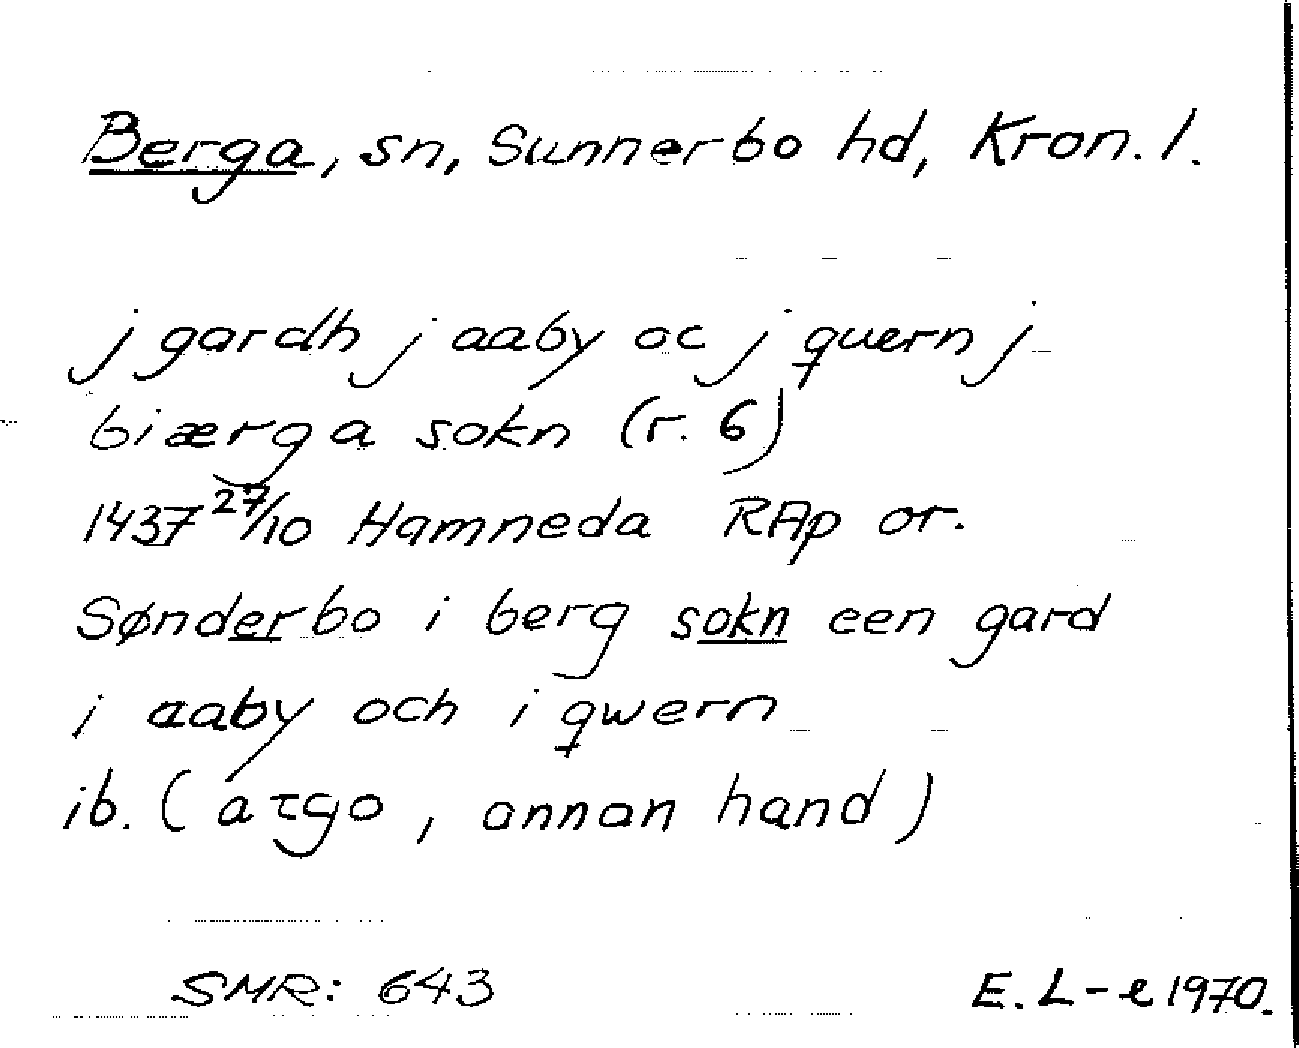 Berga, sn, Sunnerbo hd, Kron. l.
j gardh j aaby oc j quern j
biærga sokn (r. 6)
1437 27/10 Hamneda RAp or.
Sønderbo i berg sokn een gard
i aaby och i qwern
ib. (a tgo, annan hand)
SMR: 643
E. L-e 1970.